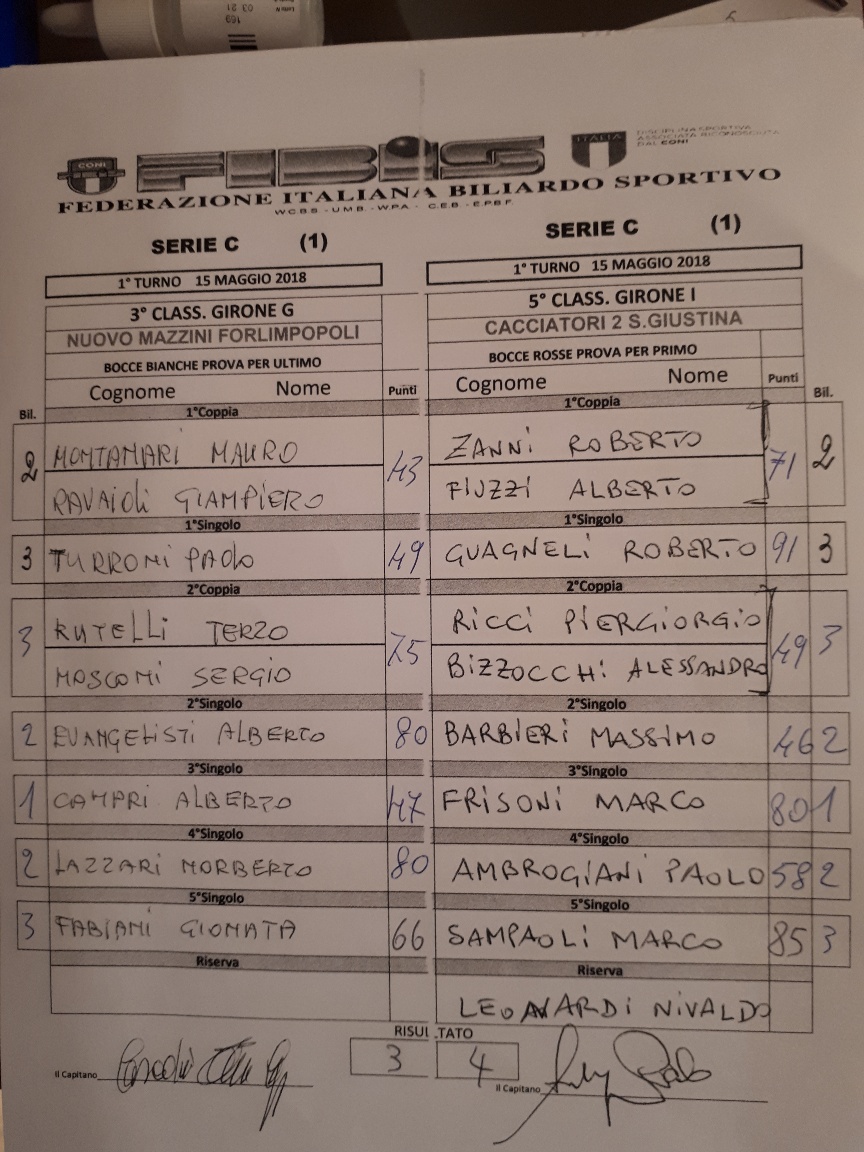 CONI FIBiS ITALIA DISCIPLINA SPORTIVA
ASSOCIATA RICONOSCIUTA
DAL CONI
FEDERAZIONE ITALIANA BILIARDO SPORTIVO
W.C.B.S. - U.M.B. - W.P.A. - C.E.B. - E.P.B.F.
SERIE C (1) SERIE C (1)
1° TURNO 15 MAGGIO 2018 1° TURNO 15 MAGGIO 2018
3° CLASS. GIRONE G 5° CLASS. GIRONE I
NUOVO MAZZINI FORLIMPOPOLI CACCIATORI 2 S.GIUSTINA
BOCCE BIANCHE PROVA PER ULTIMO BOCCE ROSSE PROVA PER PRIMO
Cognome Nome Punti Cognome Nome Punti
Bil. 1°Coppia 1°Coppia Bil.
2 MONTANARI MAURO 43 ZANNI ROBERTO 71 2
RAVAIOLI GIAMPIERO FIUZZI ALBERTO
1°Singolo 1°Singolo
3 TURRONI PAOLO 49 GUAGNELI ROBERTO 91 3
2°Coppia 2°Coppia
3 RUTELLI TERZO 75 RICCI PIERGIORGIO 49 3
MOSCONI SERGIO BIZZOCCHI ALESSANDRO
2°Singolo 2°Singolo
2 EVANGELISTI ALBERTO 80 BARBIERI MASSIMO 46 2
3°Singolo 3°Singolo
1 CAMPRI ALBERTO 47 FRISONI MARCO 80 1
4°Singolo 4°Singolo
2 LAZZARI NORBERTO 80 AMBROGIANI PAOLO 58 2
5°Singolo 5°Singolo
3 FABIANI GIONATA 66 SAMPAOLI MARCO 85 3
Riserva Riserva
LEONARDI NIVALDO
RISUL.TATO
3 4
Il Capitano Il Capitano